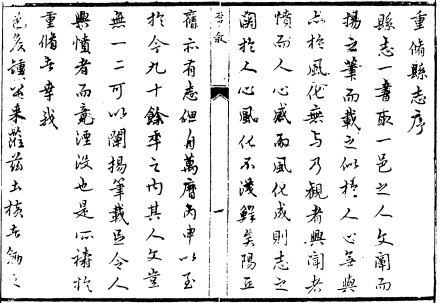 重脩縣志序
縣志一書取一邑之人文闡而
揚之筆而載之似於人心無與
與於風化無与乃觀者興聞者
憤而人心感而風化成則志之
關於人心風化不淺鮮矣陽正
舊亦有志但自萬曆丙申以至
於今九十餘年之內其人文豈
無一二可以闡揚筆載足令人
興憤者而竟湮沒也是所禱於
重脩者幸哉
邑侯譚公來蒞茲土